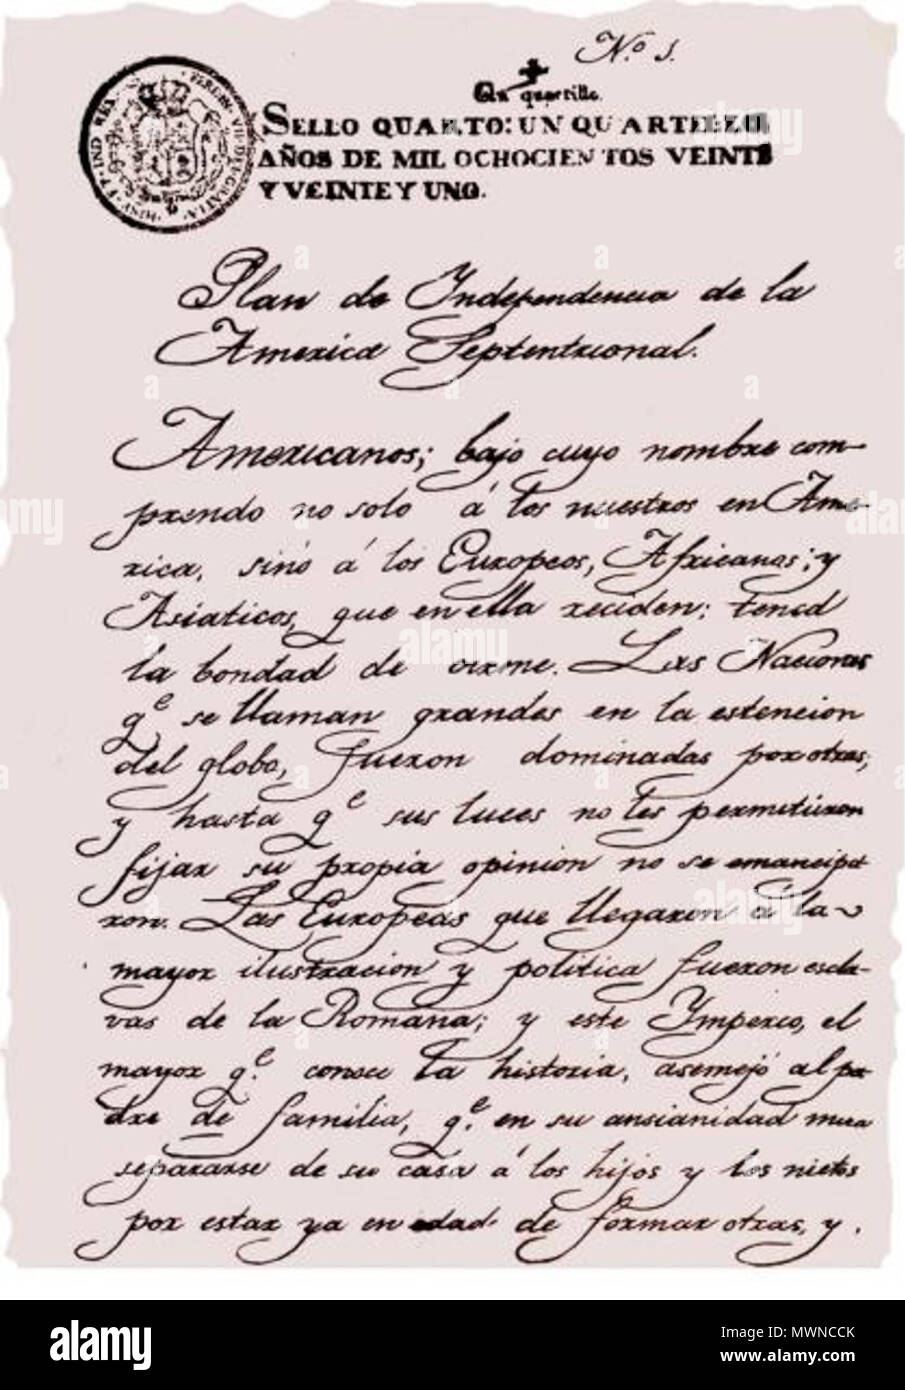 Nº 1.
Un quartillo.
SELLO QUARTO: UN QUARTILLO,
AÑOS DE MIL OCHOCIENTOS VEINTE
Y VEINTE Y UNO.
Plan de Independencia de la
America Septentrional.
Americanos; bajo cuyo nombre com-
prendo no solo á los nuestros en Ame-
rica, sinó á los Europeos, Africanos; y
Asiaticos, que en ella reciden: tened
la bondad de oirme. Las Naciones
q.e se llaman grandes en la estencion
del globo, fueron dominadas por otras;
y hasta q.e sus luces no les permitieron
fijar su propia opinion no se emancipa-
ron. Las Europeas que llegaron á la
mayor ilustracion y politica fueron escla-
vas de la Romana; y este Ymperio, el
mayor q.e conoce la historia, asemejó al pa-
dre de familia, q.e en su ansianidad mira
separarse de su casa á los hijos y los nietos
por estar ya en edad de formar otras, y
alamy
Image ID: MWNCCK
www.alamy.com